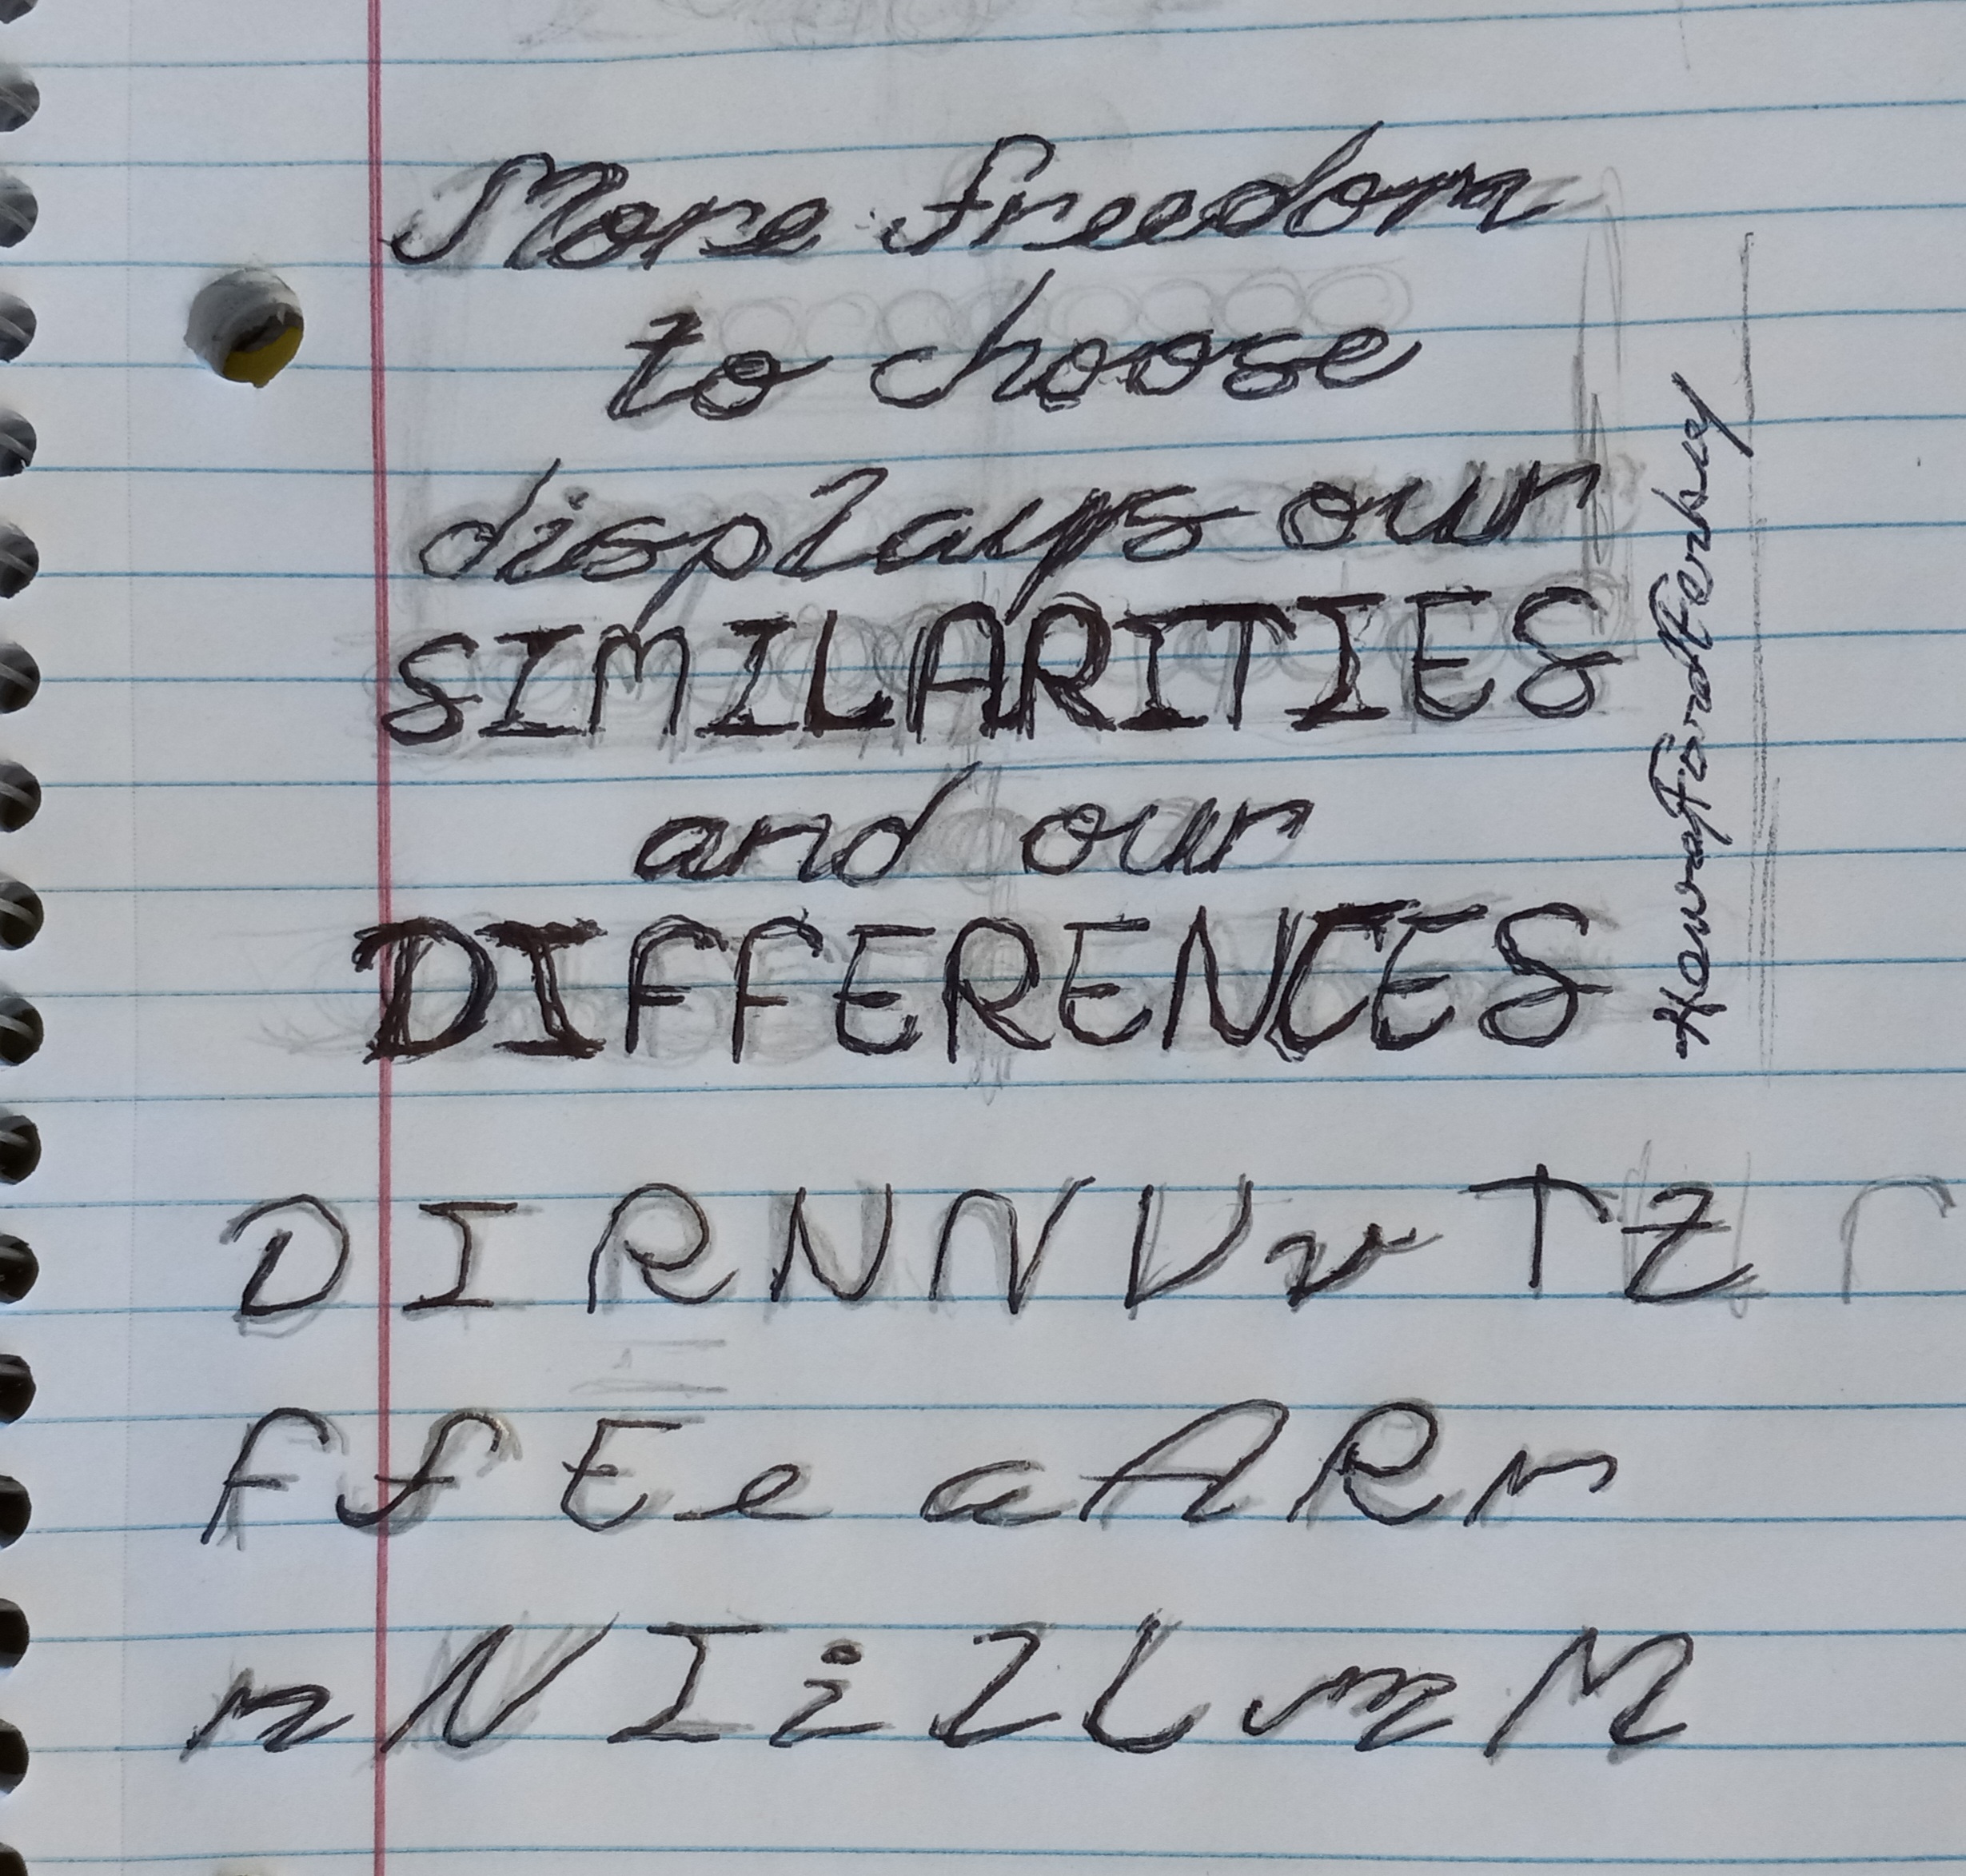 More freedom
to choose
displays our
SIMILARITIES
and our
DIFFERENCES
D I R N N V v T Z r
F f E e a A R r
n N I i l L m M